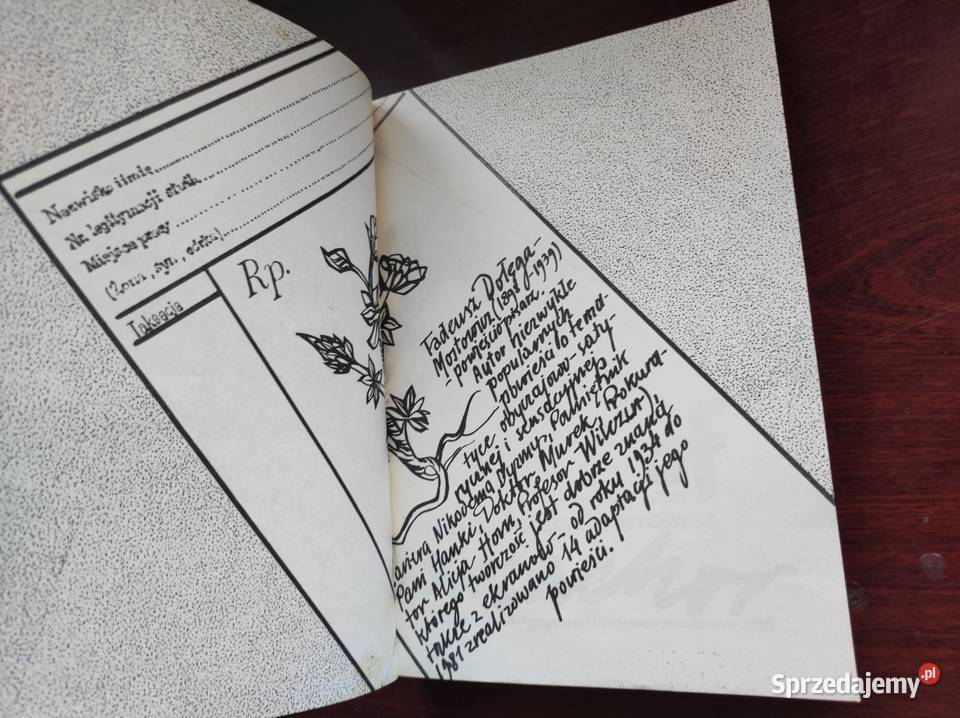 Nazwisko i imię
Nr legitymacji służb.
Miejsce pracy
(żona, syn, córka)
Taksacja
Rp.
Tadeusz Dołęga-
Mostowicz (1898-1939)
- powieściopisarz.
Autor niezwykle
popularnych
powieści o tema-
tyce obyczajowo-saty-
rycznej i sensacyjnej
Nikodema Dyzmy, Pamiętnik
Pani Hanki, Doktor Murek, Prokura-
tor Alicja Horn, Profesor Wilczur),
którego twórczość jest dobrze znana
także z ekranów - od roku 1934 do
1981 zrealizowano 14 adaptacji jego
powieści.
Sprzedajemy.pl